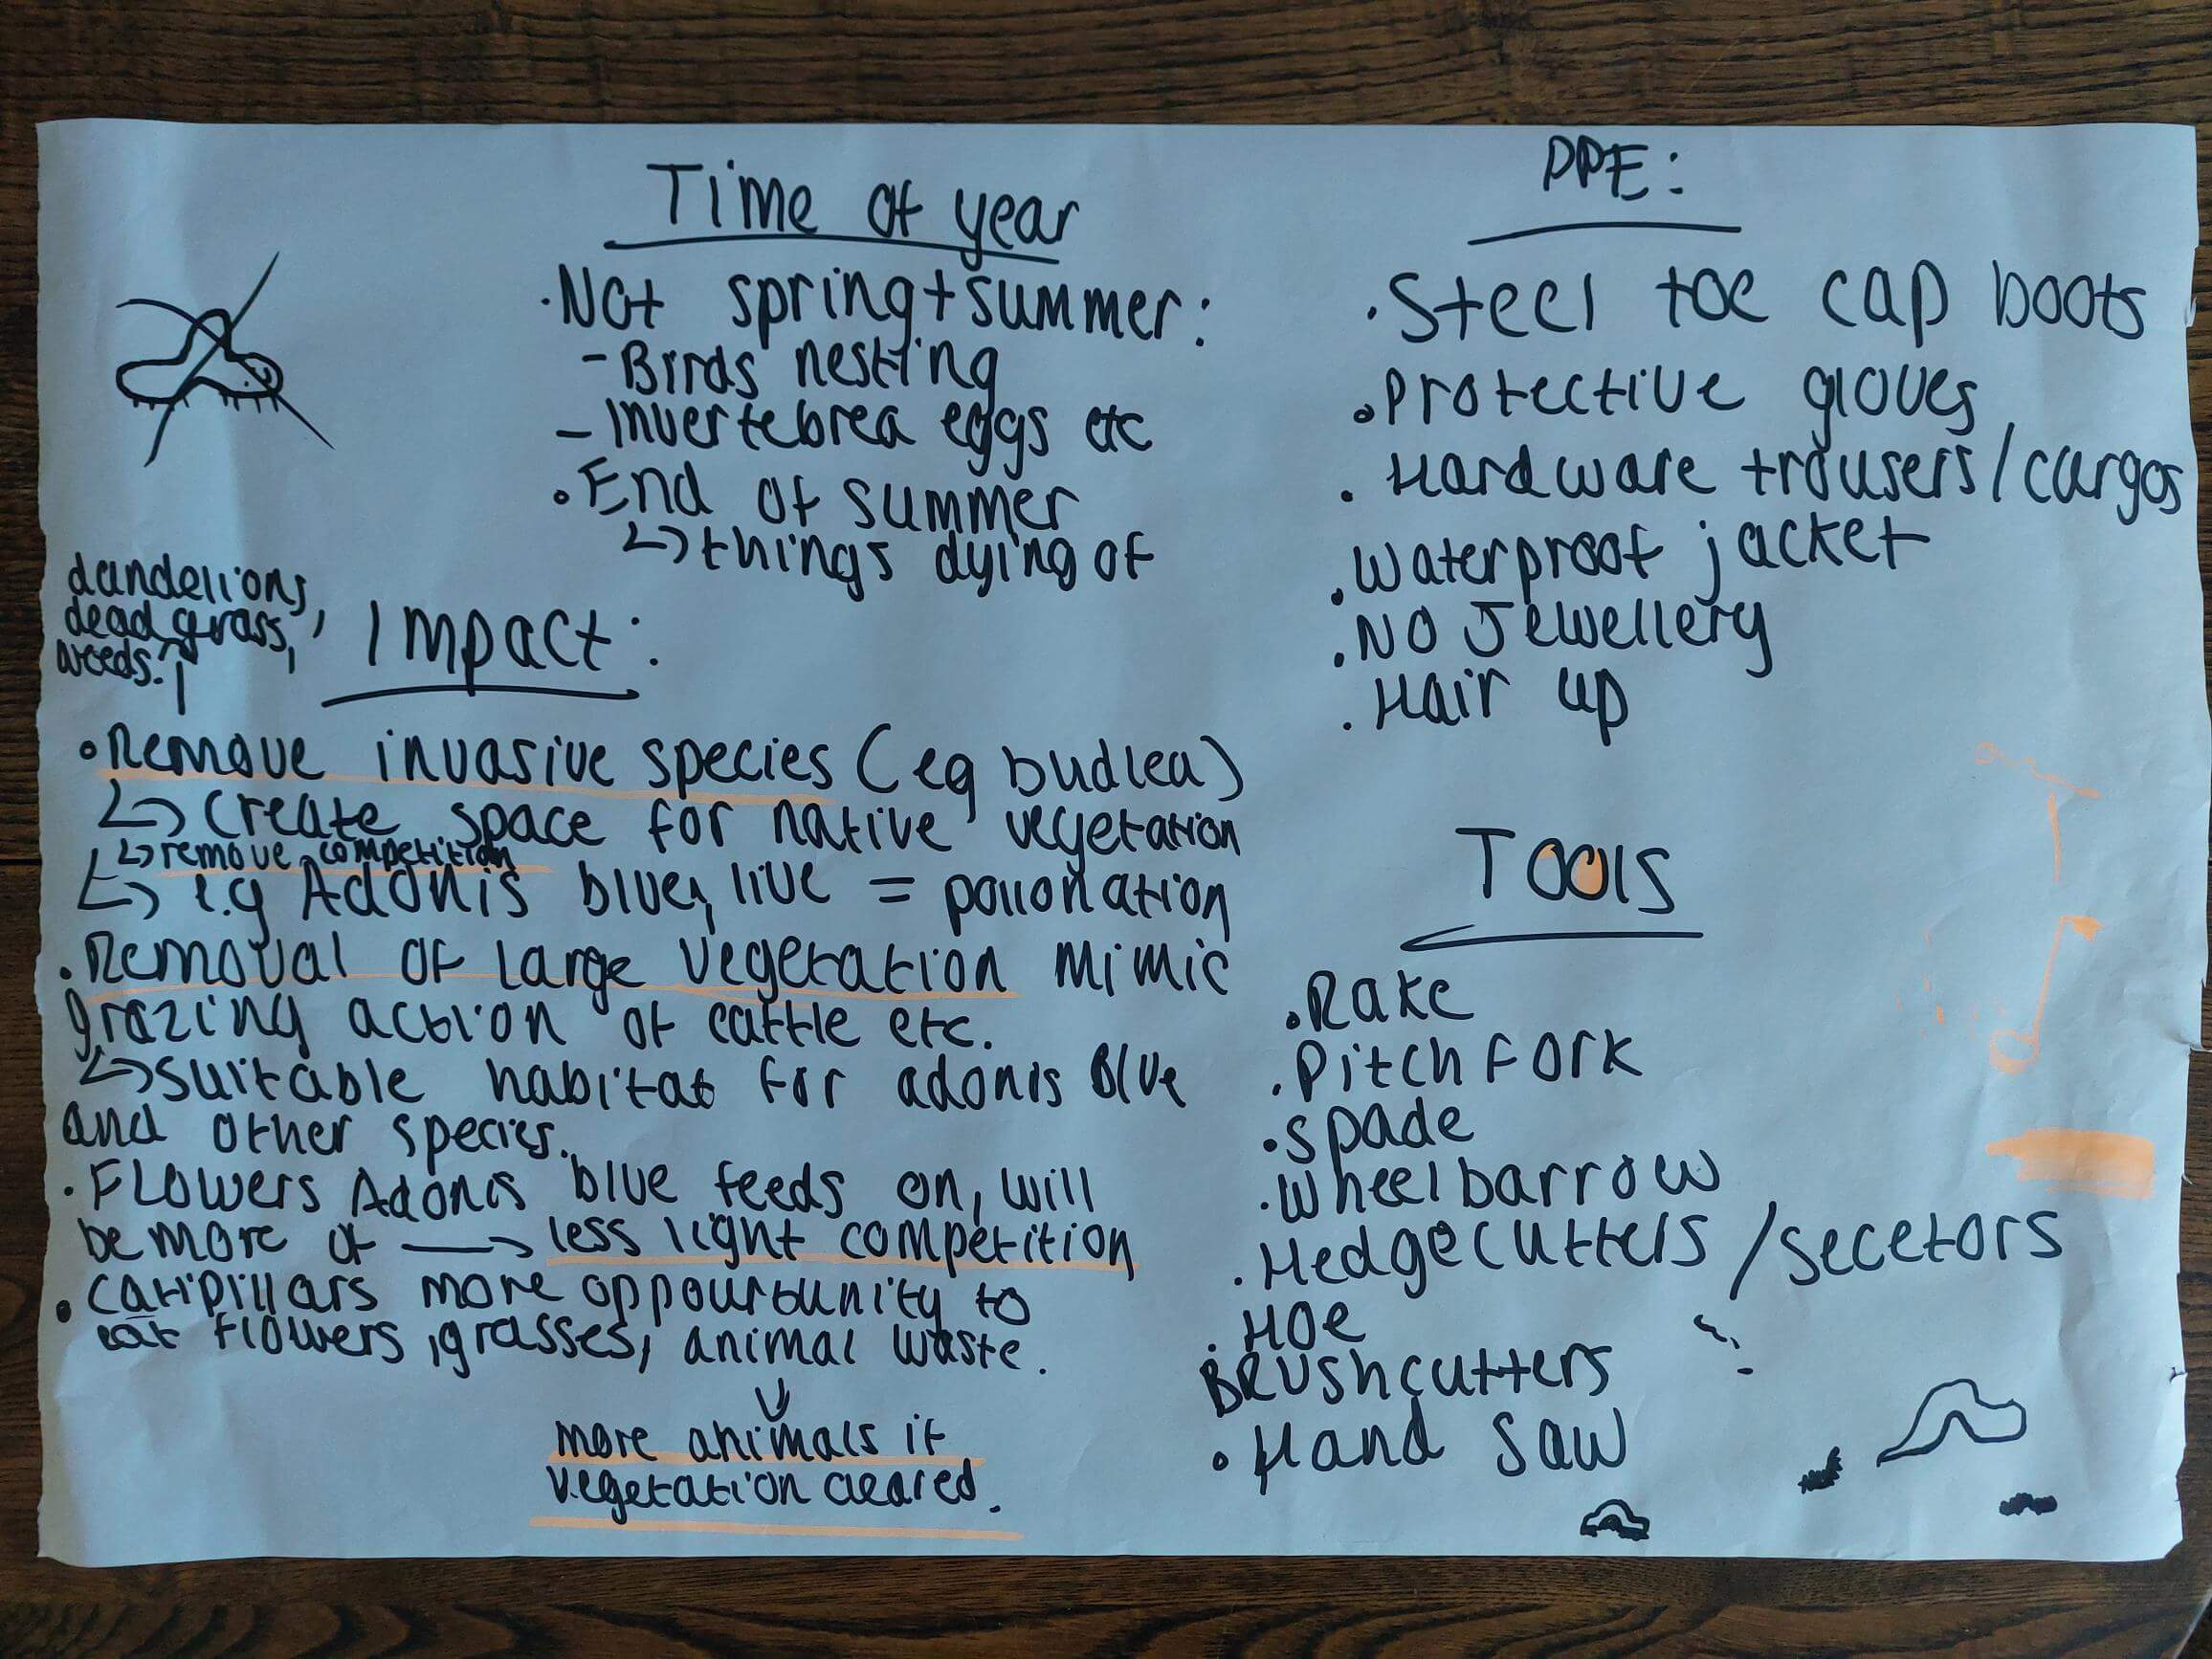 Time of year
·Not spring+summer:
-Birds nesting
-invertebrea eggs etc
·End of summer
↳things dying of
dandelions,
dead grass,
weeds.
Impact:
·Remove invasive species (eg budlea)
↳create space for native vegetation
↳remove competition
↳ e.g Adonis blue, live = pollonation
·Removal of large vegetation mimic
grazing action of cattle etc.
↳suitable habitat for adonis blue
and other species.
·Flowers Adonis blue feeds on, will
be more of → less light competition
·catipillars more oppourtunity to
eat flowers, grasses, animal waste.
↓
more animals if
vegetation cleared.
PPE:
·Steel toe cap boots
·Protective gloves
·Hardware trousers/cargos
·waterproof jacket
·No Jewellery
·Hair up
Tools
·Rake
·Pitch fork
·spade
·wheelbarrow
·Hedgecutters/secetors
·Hoe
Brushcutters
·Hand saw